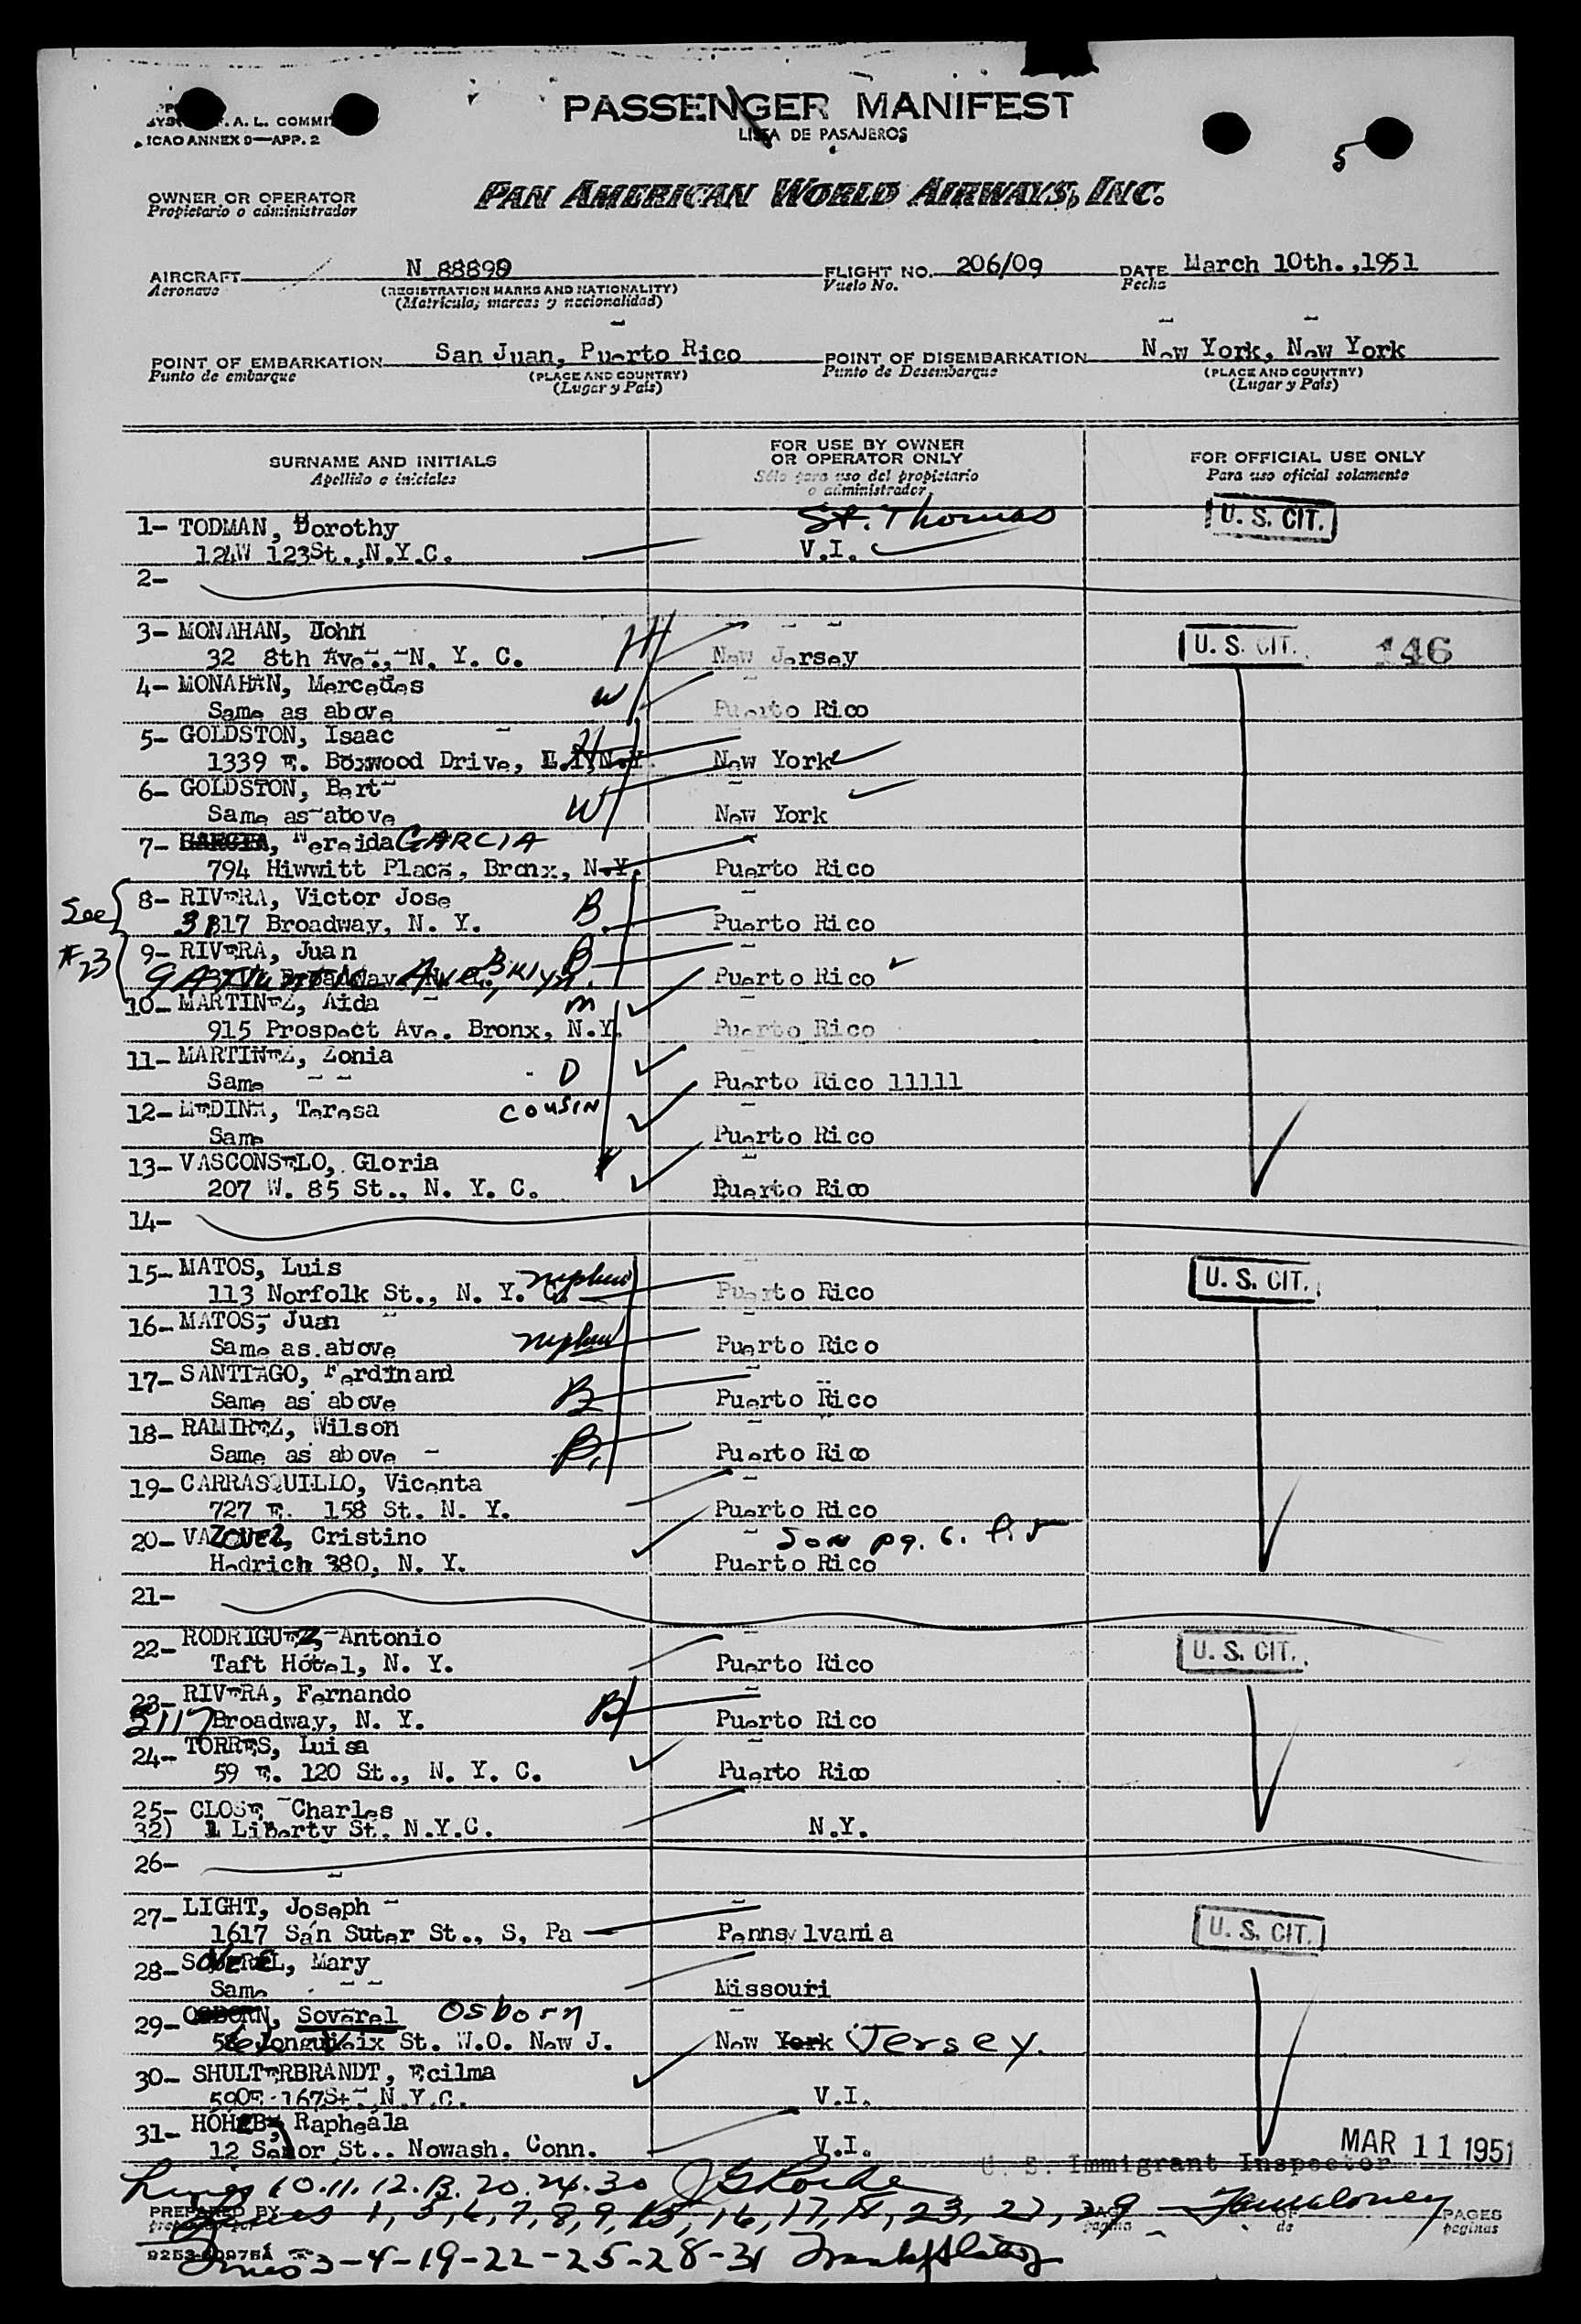 F. A. L. COMMI
ICAO ANNEX 9—APP. 2
PASSENGER MANIFEST
LISTA DE PASAJEROS
5
OWNER OR OPERATOR
Propietario o administrador
PAN AMERICAN WORLD AIRWAYS, INC.
AIRCRAFT N 88898 FLIGHT NO. 206/09 DATE March 10th.,1951
Aeronave (REGISTRATION MARKS AND NATIONALITY) Vuelo No. Fecha
(Matricula, marcas y nacionalidad)
POINT OF EMBARKATION San Juan, Puerto Rico POINT OF DISEMBARKATION New York, New York
Punto de embarque (PLACE AND COUNTRY) Punto de Desembarque (PLACE AND COUNTRY)
(Lugar y País) (Lugar y País)
SURNAME AND INITIALS FOR USE BY OWNER OR OPERATOR ONLY FOR OFFICIAL USE ONLY
Apellido e iniciales Sólo para uso del propietario o administrador. Para uso oficial solamente
1- TODMAN, Dorothy St. Thomas U. S. CIT.
124W 123St.,N.Y.C. V.I.
2-
3- MONAHAN, John H U. S. CIT. 146
32 8th Ave., N. Y. C. New Jersey
4- MONAHAN, Mercedes W
Same as above Puerto Rico
5- GOLDSTON, Isaac H
1339 E. Boxwood Drive, L.I,N.Y. New York
6- GOLDSTON, Bert W
Same as above New York
7- GARCIA, Nereida GARCIA
794 Hiwwitt Place, Bronx, N.Y. Puerto Rico
See 8- RIVERA, Victor Jose B
3117 Broadway, N. Y. Puerto Rico
#23 9- RIVERA, Juan B
Ave. Bklyn. Puerto Rico
10- MARTINEZ, Aida m
915 Prospect Ave. Bronx, N.Y. Puerto Rico
11- MARTINEZ, Zonia D
Same Puerto Rico 11111
12- MEDINA, Teresa COUSIN
Same Puerto Rico
13- VASCONSELO, Gloria
207 W. 85 St., N. Y. C. Puerto Rico
14-
15- MATOS, Luis nephew U. S. CIT.
113 Norfolk St., N. Y. C. Puerto Rico
16- MATOS, Juan nephew
Same as above Puerto Rico
17- SANTIAGO, Ferdinand B
Same as above Puerto Rico
18- RAMIREZ, Wilson B.
Same as above Puerto Rico
19- CARRASQUILLO, Vicenta
727 E. 158 St. N. Y. Puerto Rico
20- VAZQUEZ, Cristino Son pg. 6.
Hedrich 380, N. Y. Puerto Rico
21-
22- RODRIGUEZ, Antonio U. S. CIT.
Taft Hotel, N. Y. Puerto Rico
23- RIVERA, Fernando B
3117 Broadway, N. Y. Puerto Rico
24- TORRES, Luisa
59 E. 120 St., N. Y. C. Puerto Rico
25- CLOSE Charles
32) 1 Liberty St. N.Y.C. N.Y.
26-
27- LIGHT, Joseph U. S. CIT.
1617 San Suter St., S, Pa Pennsylvania
28- SOVEREL, Mary
Same Missouri
29- OSBORN, Soverel Osborn
St. W.O. New J. New York Jersey.
30- SHULTERBRANDT, Ecilma
590E 167St N.Y.C. V.I.
31- Rapheala
12 St.. Nowash. Conn. V.I.
MAR 11 1951
U. S. Immigrant Inspector
Lines 10.11.12.13.20.24.30
PREPARED BY Lines 1, 5, 6, 7, 8, 9, 15, 16, 17, 18, 23, 27, 29 PAGE OF PAGES
página de páginas
Lines 3-4-19-22-25-28-31